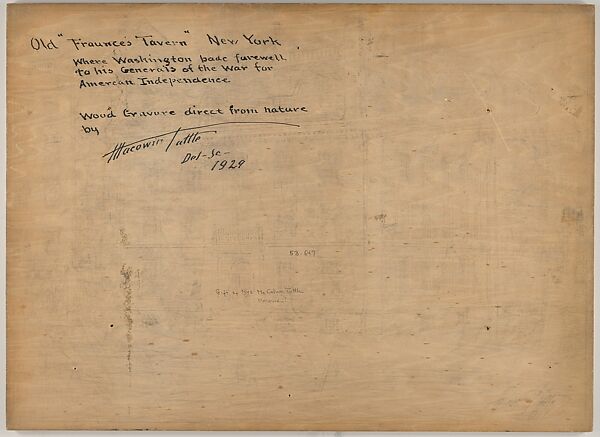 Old "Fraunce's Tavern" New York.
Where Washington bade farewell
to his Generals of the War for
Amercan Independence
Wood Gravure direct from nature
by
Macowin Tuttle
Del-Sc-
1929
53.647
Gift of Mrs McCowin Tuttle